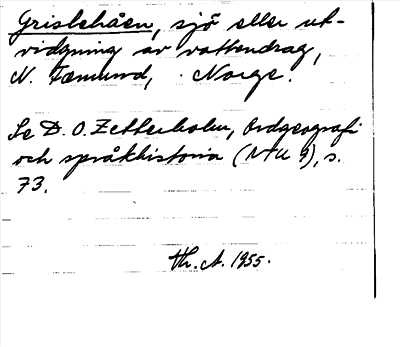 Grislehåen, sjö eller ut-
vidgning av vattendrag,
N. Fæmund, Norge.
Se D. O. Zetterholm, Ordgeografi
och språkhistoria (NTU 9), s.
73.
Th. A. 1955.